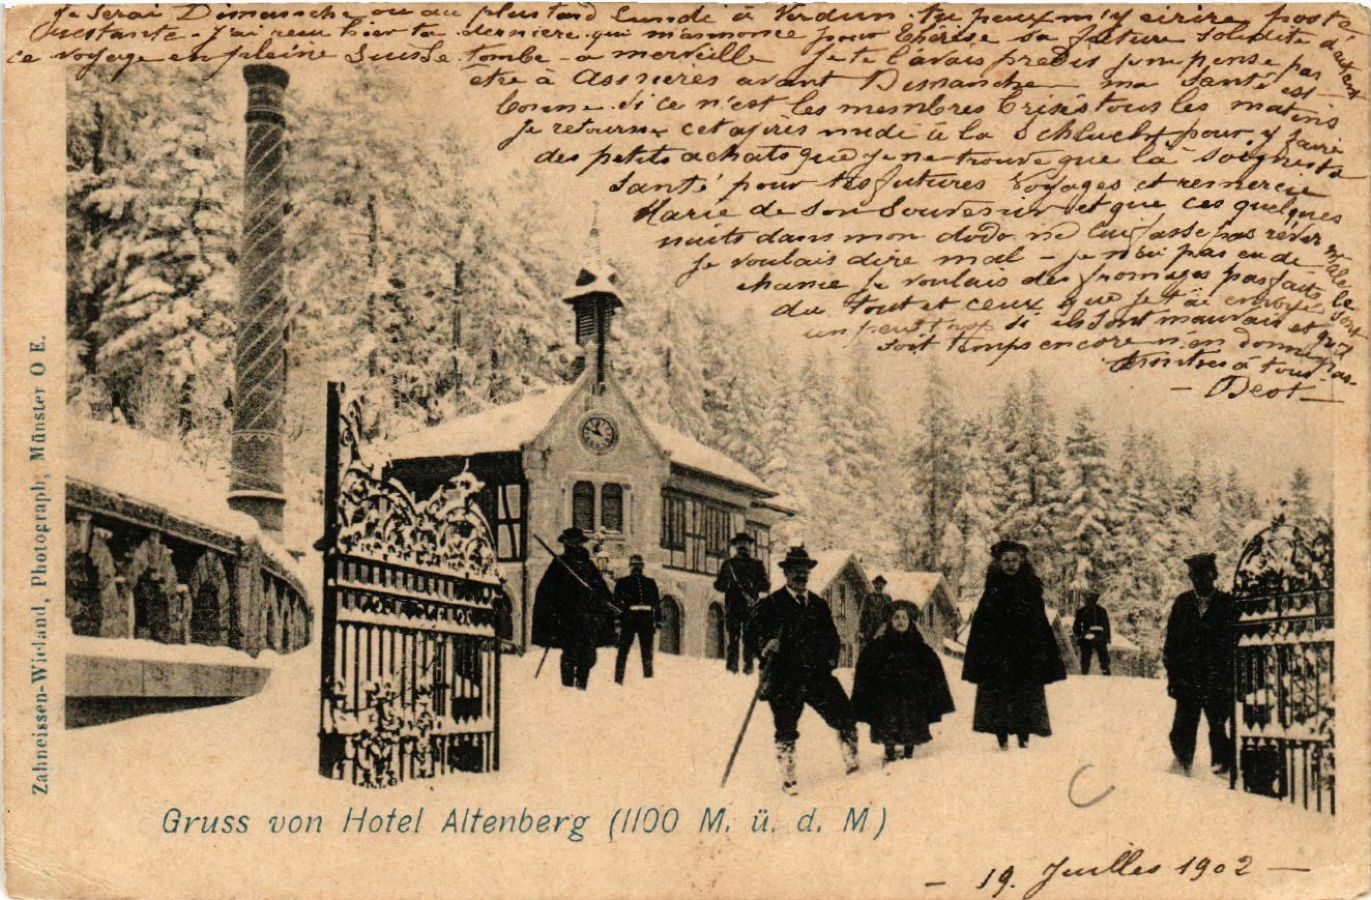 Je serai Dimanche ou au plus tard lundi à Verdun. tu peux m'y écrire poste
Restante - J'ai reçu hier ta dernière qui m'annonce pour
ce voyage en pleine Suisse tombe - a merveille Je te l'avais prédis je ne pense pas
être à Asnieres avant Dimanche ma Santé est
bonne. Si ce n'est les membres brisés tous les matins
Je retourne cet après midi à la Schlucht pour y faire
des petits achats que je ne trouve que là Soigne ta
Santé pour tes futures Voyages et remercie
Marie de Son Souvenir et que ces quelques
nuits dans mon dodo ne lui fasse pas rêver mal
Je voulais dire mal - je n'ai pas eu de
chance je voulais des fromages pas faits
du Tout et ceux que je t'ai envoyé le sont
un peu trop Si ils Sont mauvais et qu'il
soit temps encore n'en donne pas
à tous -
19. Juilles 1902
Gruss von Hotel Altenberg (1100 M. ü. d. M)
Zahneissen-Wieland, Photograph, Münster O E.